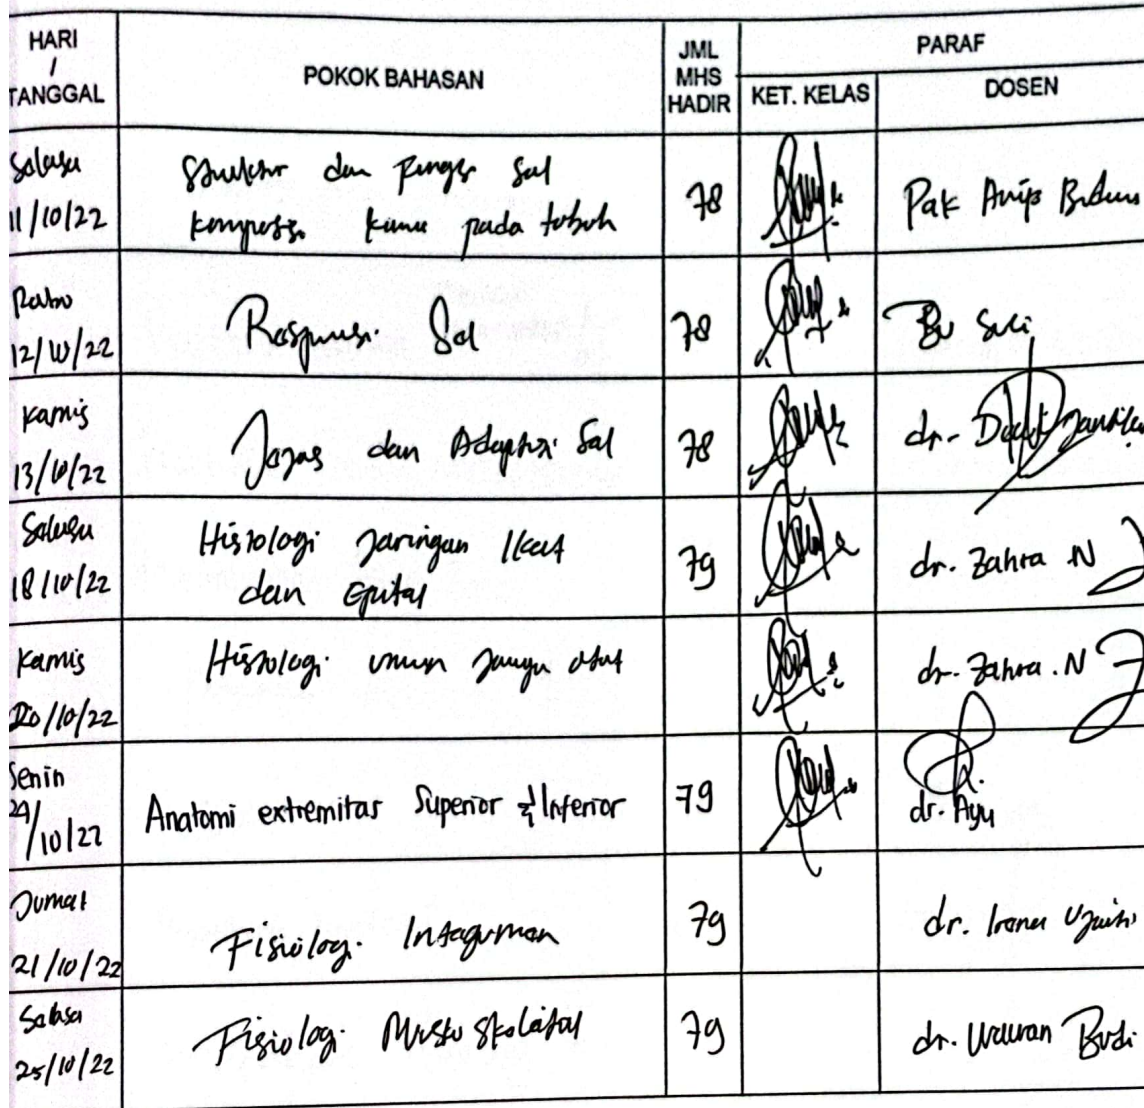 HARI
/
TANGGAL
POKOK BAHASAN
JML
MHS
HADIR
PARAF
KET. KELAS
DOSEN
Selasa
11/10/22
Struktur dan Fungsi Sel
komposisi kimia pada tubuh
78
Pak Arip
Rabu
12/10/22
Respirasi Sel
78
Bu Suci
Kamis
13/10/22
Jejas dan Adaptasi Sel
78
dr.
Selasa
18/10/22
Histologi Jaringan Ikat
dan Epitel
79
dr. Zahra N
Kamis
20/10/22
Histologi umum
dr. Zahra .N
Senin
24
/10/22
Anatomi extremitas Superior & Inferior
79
dr. Ayu
Jumat
21/10/22
Fisiologi Integumen
79
dr.
Selasa
25/10/22
Fisiologi Muskuloskeletal
79
dr. Budi